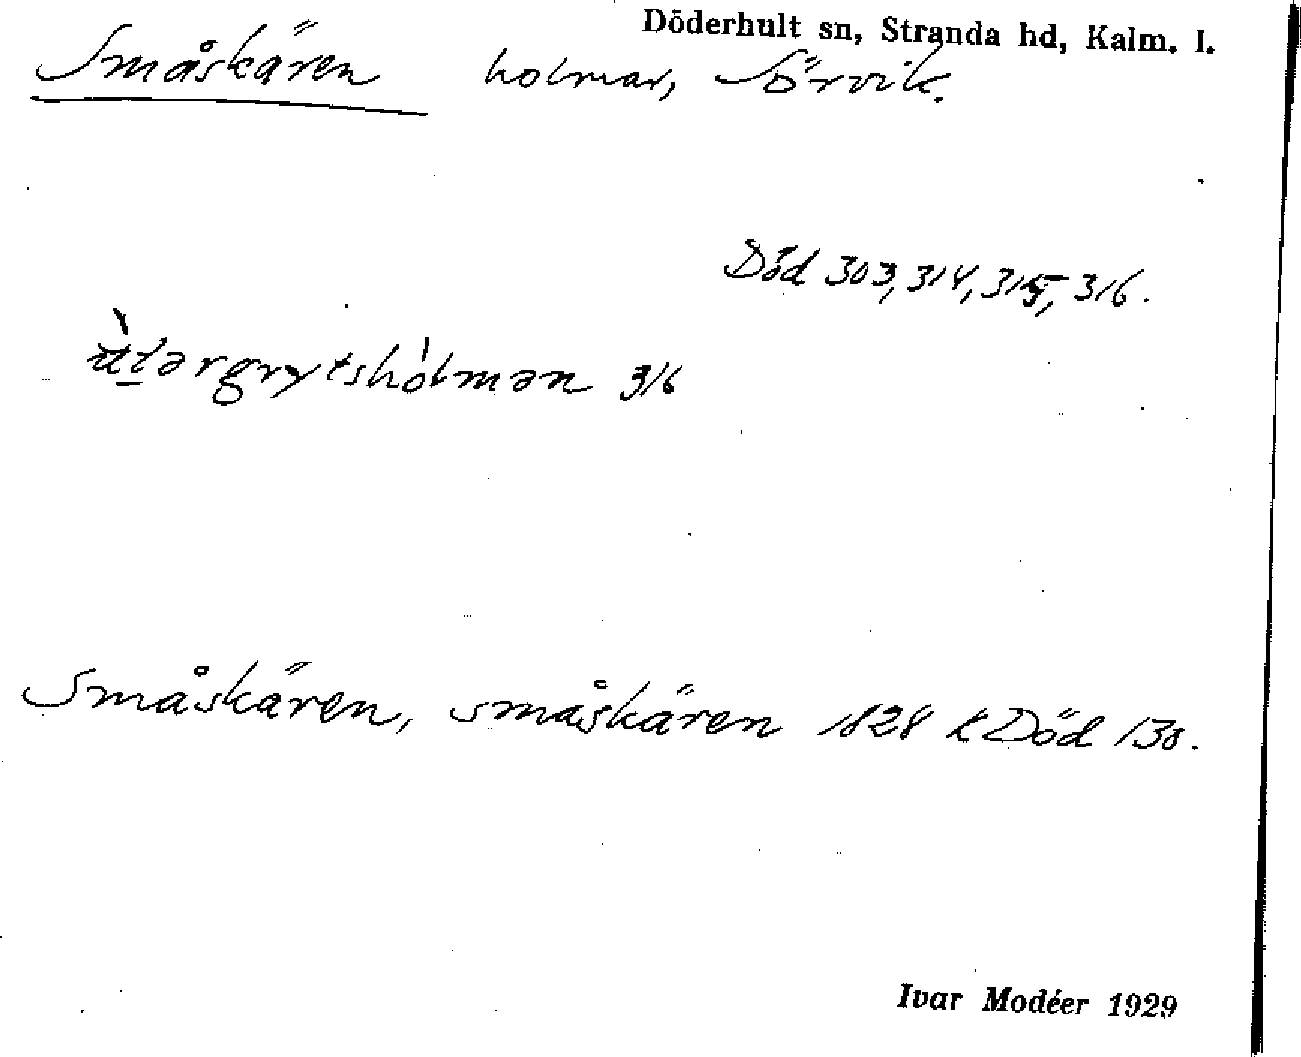 Döderhult sn, Stranda hd, Kalm. l.
Småskären holmar, Sörvik.
Död 303, 314, 315, 316.
ùtərgrytshòlmən 316
Småskären, småskären 1828 k Död 130.
Ivar Modéer 1929